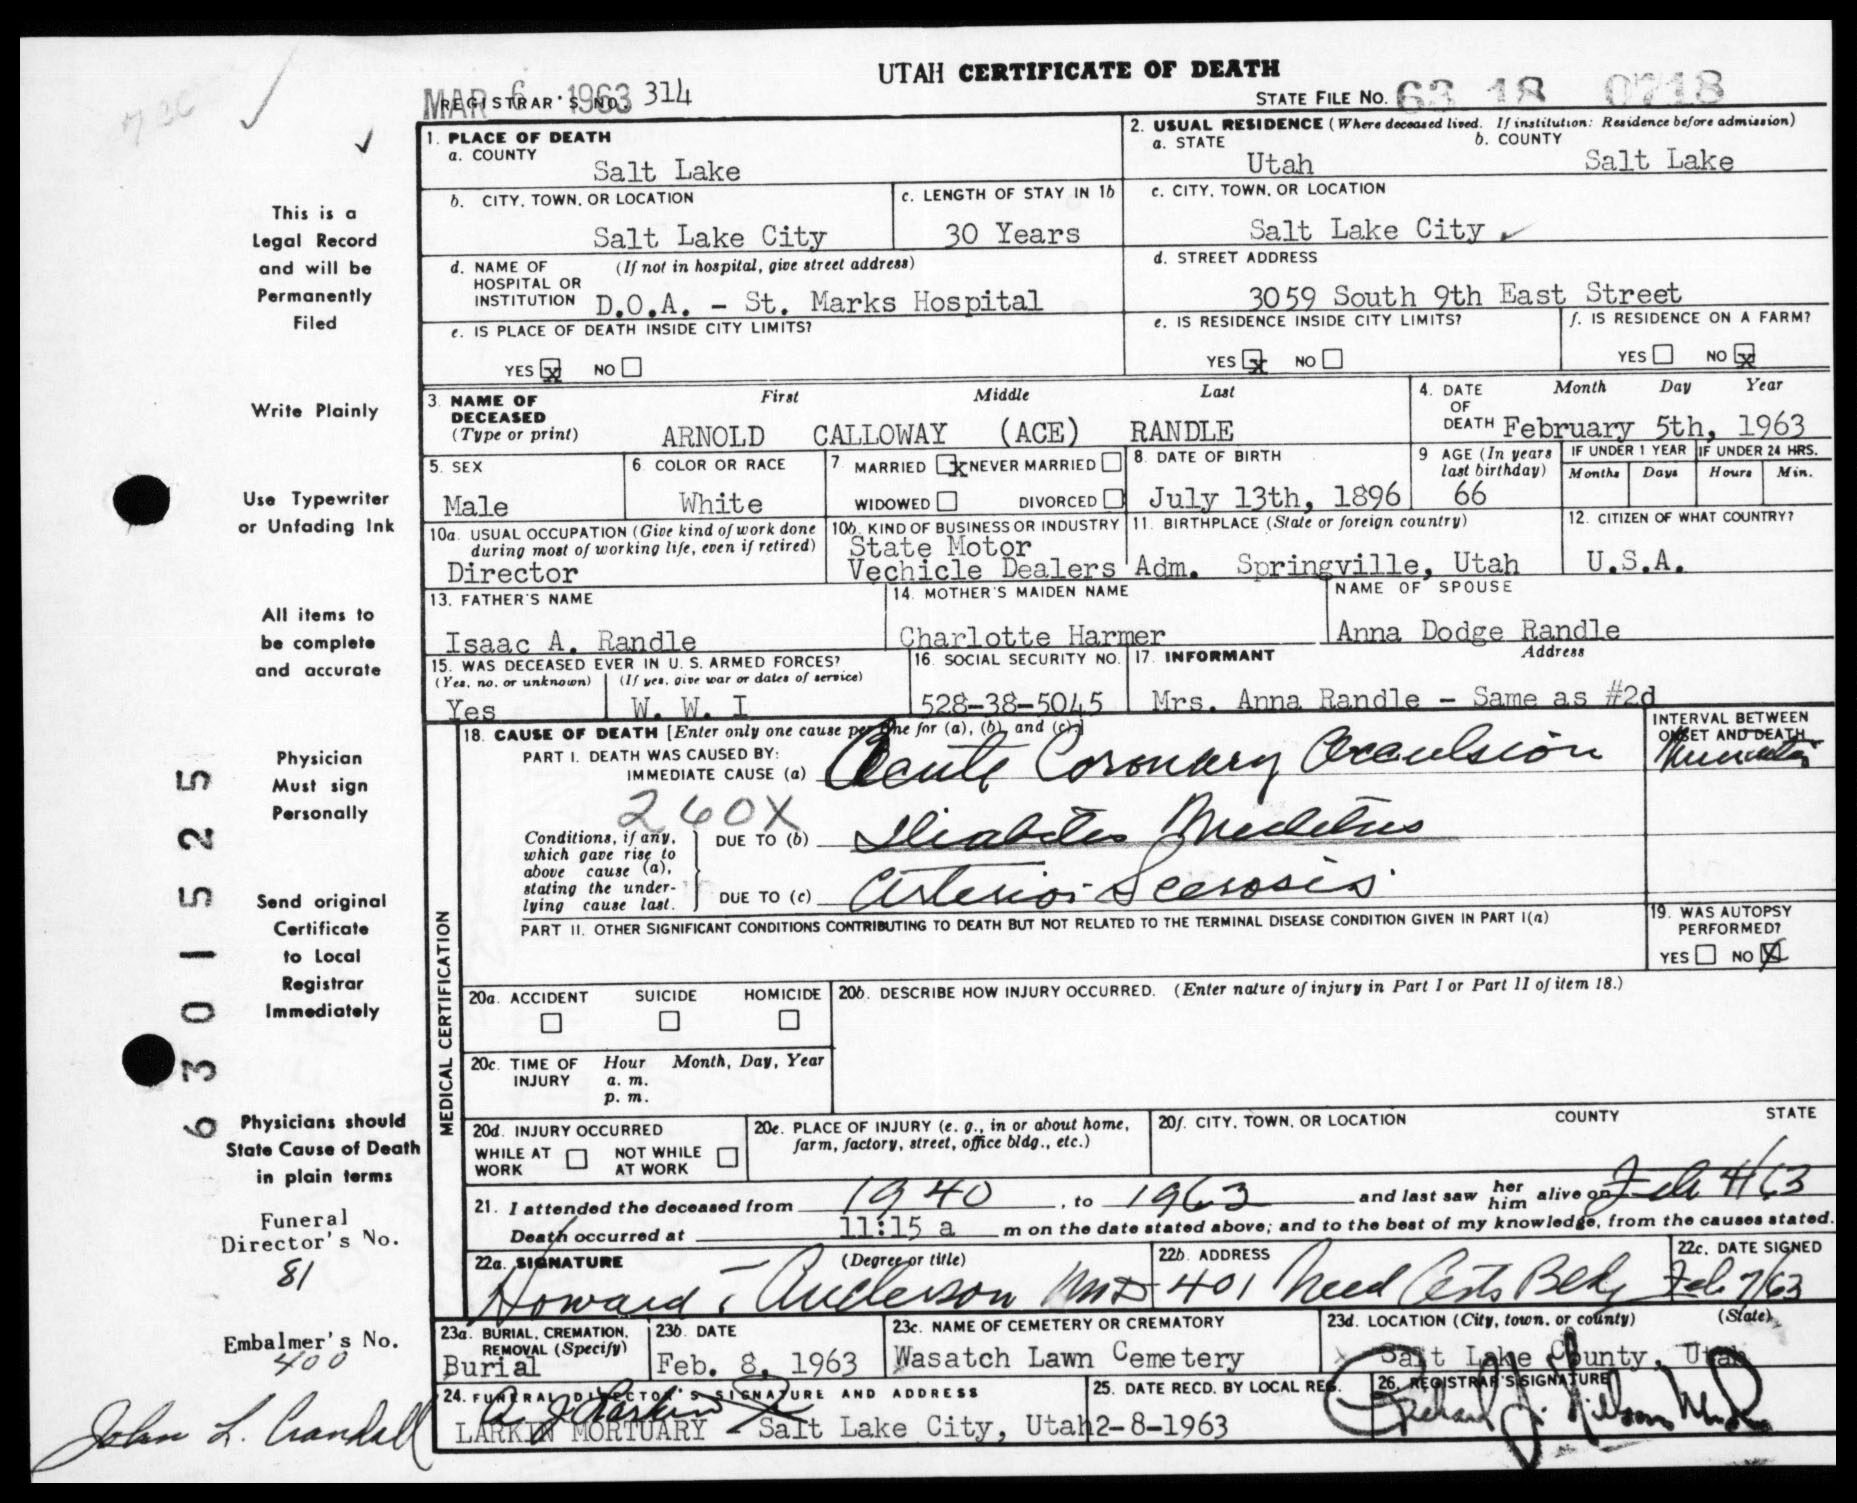 UTAH CERTIFICATE OF DEATH
MAR 6 1963
REGISTRAR'S NO. 314
STATE FILE NO. 63 18 0718
1. PLACE OF DEATH
a. COUNTY
Salt Lake
2. USUAL RESIDENCE (Where deceased lived. If institution: Residence before admission)
a. STATE
Utah
b. COUNTY
Salt Lake
b. CITY, TOWN, OR LOCATION
Salt Lake City
c. LENGTH OF STAY IN 1b
30 Years
c. CITY, TOWN, OR LOCATION
Salt Lake City
d. NAME OF HOSPITAL OR INSTITUTION
(If not in hospital, give street address)
D.O.A. - St. Marks Hospital
d. STREET ADDRESS
3059 South 9th East Street
e. IS PLACE OF DEATH INSIDE CITY LIMITS?
YES x NO
e. IS RESIDENCE INSIDE CITY LIMITS?
YES x NO
f. IS RESIDENCE ON A FARM?
YES NO x
3. NAME OF DECEASED
(Type or print)
First Middle Last
ARNOLD CALLOWAY (ACE) RANDLE
4. DATE OF DEATH
Month Day Year
February 5th, 1963
5. SEX
Male
6. COLOR OR RACE
White
7. MARRIED x NEVER MARRIED
WIDOWED DIVORCED
8. DATE OF BIRTH
July 13th, 1896
9 AGE (In years last birthday)
66
IF UNDER 1 YEAR
Months Days
IF UNDER 24 HRS.
Hours Min.
10a. USUAL OCCUPATION (Give kind of work done during most of working life, even if retired)
Director
10b. KIND OF BUSINESS OR INDUSTRY
State Motor
Vechicle Dealers Adm.
11. BIRTHPLACE (State or foreign country)
Springville, Utah
12. CITIZEN OF WHAT COUNTRY?
U.S.A.
13. FATHER'S NAME
Isaac A. Randle
14. MOTHER'S MAIDEN NAME
Charlotte Harmer
NAME OF SPOUSE
Anna Dodge Randle
15. WAS DECEASED EVER IN U. S. ARMED FORCES?
(Yes, no, or unknown) (If yes, give war or dates of service)
Yes W. W. I
16. SOCIAL SECURITY NO.
528-38-5045
17. INFORMANT Address
Mrs. Anna Randle - Same as #2d
MEDICAL CERTIFICATION
18. CAUSE OF DEATH [Enter only one cause per line for (a), (b), and (c).]
INTERVAL BETWEEN ONSET AND DEATH
PART I. DEATH WAS CAUSED BY:
IMMEDIATE CAUSE (a) Acute Coronary Occulsion Minutes
260X
Conditions, if any, which gave rise to above cause (a), stating the underlying cause last.
DUE TO (b) Diabetes Mellitus
DUE TO (c) Arterio-Scerosis
PART II. OTHER SIGNIFICANT CONDITIONS CONTRIBUTING TO DEATH BUT NOT RELATED TO THE TERMINAL DISEASE CONDITION GIVEN IN PART I(a)
19. WAS AUTOPSY PERFORMED?
YES NO X
20a. ACCIDENT SUICIDE HOMICIDE
20b. DESCRIBE HOW INJURY OCCURRED. (Enter nature of injury in Part I or Part II of item 18.)
20c. TIME OF INJURY
Hour Month, Day, Year
a. m.
p. m.
20d. INJURY OCCURRED
WHILE AT WORK NOT WHILE AT WORK
20e. PLACE OF INJURY (e. g., in or about home, farm, factory, street, office bldg., etc.)
20f. CITY, TOWN, OR LOCATION COUNTY STATE
21. I attended the deceased from 1940, to 1963 and last saw her him alive on Feb 4/63
Death occurred at 11:15 a m on the date stated above; and to the best of my knowledge, from the causes stated.
22a. SIGNATURE (Degree or title)
Howard T Anderson MD
22b. ADDRESS
401 Med Arts Bldg
22c. DATE SIGNED
Feb 7/63
23a. BURIAL, CREMATION, REMOVAL (Specify)
Burial
23b. DATE
Feb. 8, 1963
23c. NAME OF CEMETERY OR CREMATORY
Wasatch Lawn Cemetery
23d. LOCATION (City, town, or county) (State)
Salt Lake County, Utah
24. FUNERAL DIRECTOR'S SIGNATURE AND ADDRESS
LARKIN MORTUARY - Salt Lake City, Utah
25. DATE RECD. BY LOCAL REG.
2-8-1963
26. REGISTRAR'S SIGNATURE
This is a
Legal Record
and will be
Permanently
Filed
Write Plainly
Use Typewriter
or Unfading Ink
All items to
be complete
and accurate
Physician
Must sign
Personally
Send original
Certificate
to Local
Registrar
Immediately
Physicians should
State Cause of Death
in plain terms
Funeral
Director's No.
81
Embalmer's No.
400
John L. Crandall
63015525